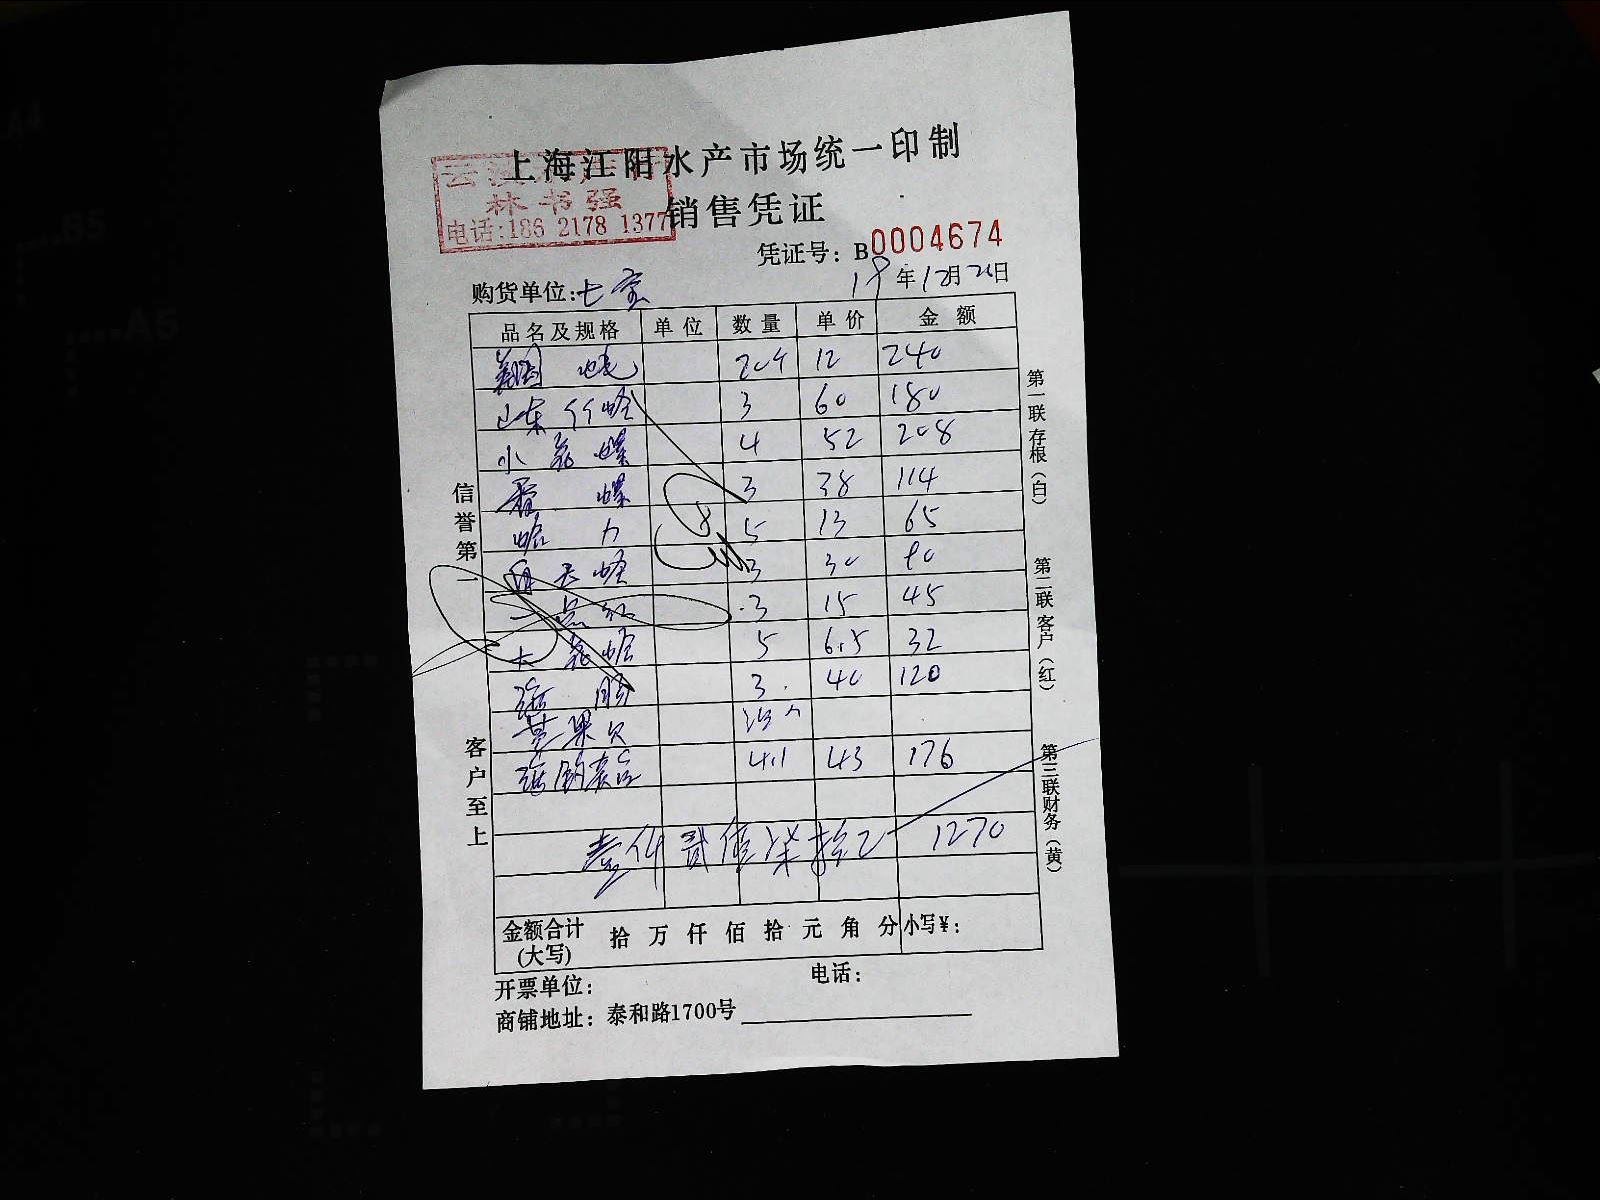 上海江阳水产市场统一印制
林书强
销售凭证
电话:186 2178 1377
凭证号:B0004674
购货单位:七宝 19年12月26日
品名及规格 单位 数量 单价 金额
12 240
山东竹蛏 3 60 180
小花螺 4 52 208
香螺 3 38 114
蛤 5 13 65
蛏 3 30 90
一点红 3 15 45
大花蛤 5 6.5 32
海肠 3 40 120
苹果
4.1 43 176
壹仟贰佰柒拾 1270
金额合计(大写) 拾 万 仟 佰 拾 元 角 分 小写¥:
开票单位: 电话:
商铺地址:泰和路1700号
信誉第一
客户至上
第一联存根(白)
第二联客户(红)
第三联财务(黄)